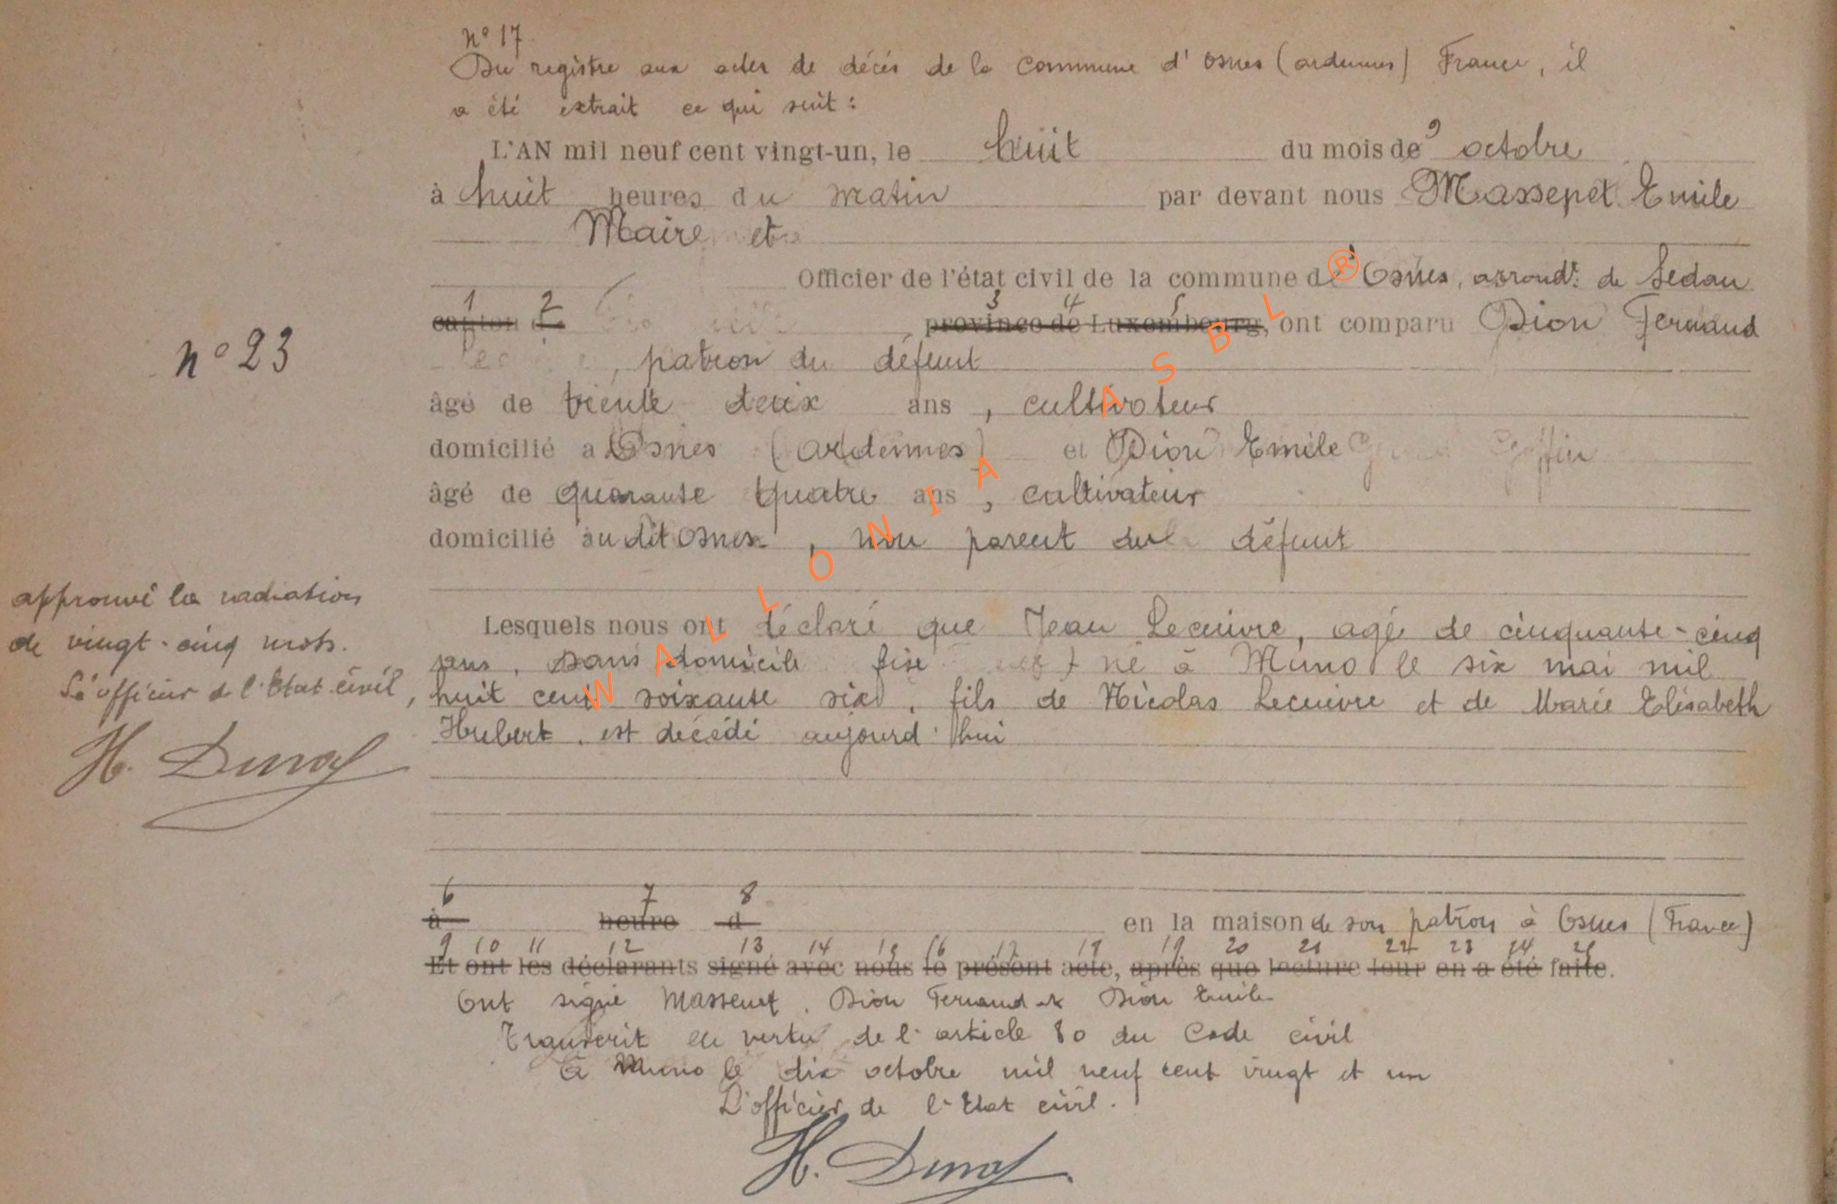 n° 17
Du registre aux actes de décès de la commune d'Osnes (ardennes) France, il
a été extrait ce qui suit :
L'AN mil neuf cent vingt-un, le huit du mois de octobre
à huit heures du matin par devant nous Massepet Emile
Maire et
Officier de l'état civil de la commune d Osnes, arrondt. de Sedan
1 2 3 4 5
canton de province de Luxembourg, ont comparu Dion Fernand
n° 23
, patron du défunt
âgé de trente deux ans, cultivateur
domicilié a Osnes (ardennes) et Dion Emile
âgé de quarante quatre ans, cultivateur
domicilié au dit Osnes, non parent du défunt
approuvé la radiation
de vingt-cinq mots.
L'officier de l'Etat civil,
H. Duroy
Lesquels nous ont déclaré que Jean Lecuivre, agé de cinquante-cinq
ans, sans domicile fixe né à Muno le six mai mil
huit cent soixante six, fils de Nicolas Lecuivre et de Marie Elisabeth
Hubert, est décédé aujourd'hui
6 7 8
à heure d en la maison de son patron à Osnes (France)
9 10 11 12 13 14 15 16 17 18 19 20 21 22 23 24 25
Et ont les déclarants signé avec nous le présent acte, après que lecture leur en a été faite.
Ont signé Massepet, Dion Fernand et Dion Emile
Transcrit en vertu de l'article 80 du Code civil
à Muno le dix octobre mil neuf cent vingt et un
L'officier de l'Etat civil.
H. Duroy
WALLONIA ASBL ®